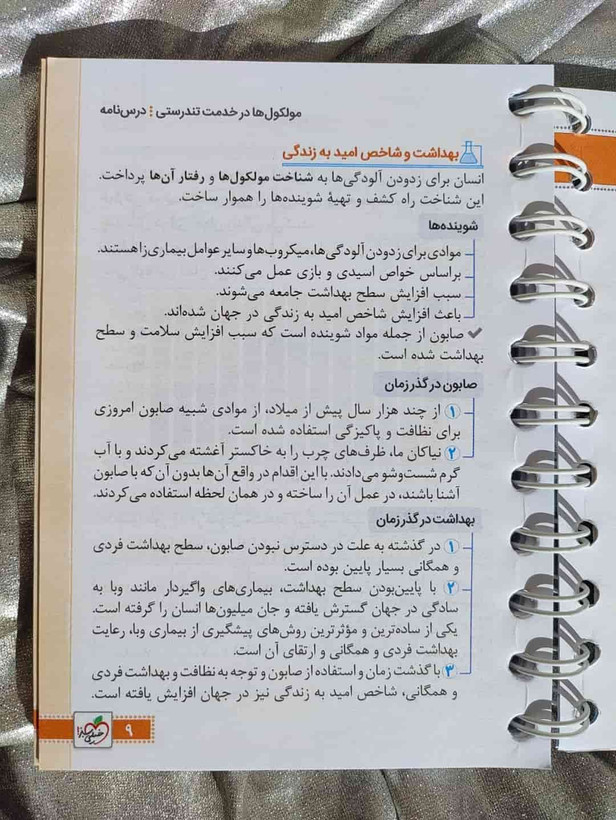 مولکول‌ها در خدمت تندرستی : درس‌نامه
بهداشت و شاخص امید به زندگی
انسان برای زدودن آلودگی‌ها به شناخت مولکول‌ها و رفتار آن‌ها پرداخت.
این شناخت راه کشف و تهیهٔ شوینده‌ها را هموار ساخت.
شوینده‌ها
موادی برای زدودن آلودگی‌ها، میکروب‌ها و سایر عوامل بیماری‌زا هستند.
براساس خواص اسیدی و بازی عمل می‌کنند.
سبب افزایش سطح بهداشت جامعه می‌شوند.
باعث افزایش شاخص امید به زندگی در جهان شده‌اند.
✔ صابون از جمله مواد شوینده است که سبب افزایش سلامت و سطح
بهداشت شده است.
صابون در گذر زمان
۱ از چند هزار سال پیش از میلاد، از موادی شبیه صابون امروزی
برای نظافت و پاکیزگی استفاده شده است.
۲ نیاکان ما، ظرف‌های چرب را به خاکستر آغشته می‌کردند و با آب
گرم شست‌وشو می‌دادند. با این اقدام در واقع آن‌ها بدون آن‌که با صابون
آشنا باشند، در عمل آن را ساخته و در همان لحظه استفاده می‌کردند.
بهداشت در گذر زمان
۱ در گذشته به علت در دسترس نبودن صابون، سطح بهداشت فردی
و همگانی بسیار پایین بوده است.
۲ با پایین‌بودن سطح بهداشت، بیماری‌های واگیردار مانند وبا به
سادگی در جهان گسترش یافته و جان میلیون‌ها انسان را گرفته است.
یکی از ساده‌ترین و مؤثرترین روش‌های پیشگیری از بیماری وبا، رعایت
بهداشت فردی و همگانی و ارتقای آن است.
۳ با گذشت زمان و استفاده از صابون و توجه به نظافت و بهداشت فردی
و همگانی، شاخص امید به زندگی نیز در جهان افزایش یافته است.
خیلی سبز
۹